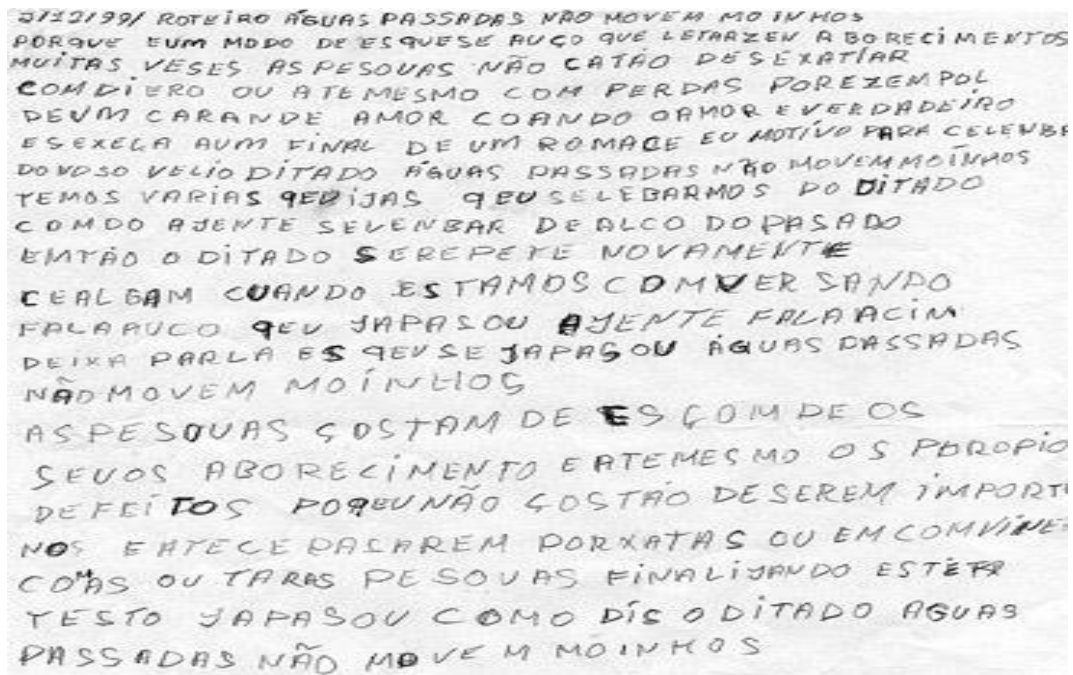 2/12/99/ ROTEIRO ÁGUAS PASSADAS NÃO MOVEM MOINHOS
PORQUE EUM MODO DE ESQUESE AUGO QUE LETARZEN ABORECIMENTOS
MUITAS VESES AS PESOUAS NÃO CATÃO DESEXATIAR
COM DIERO OU ATEMESMO COM PERDAS POREZEMPOL
DEUM CARANDE AMOR COANDO OAMOR E VERDADEIRO
ESEXEGA AUM FINAL DE UM ROMACE EU MOTIVO PARA CELENBA
DO VOSO VELIO DITADO ÁGUAS PASSADAS NÃO MOVEM MOÍNHOS
TEMOS VARIAS QEDIJAS QEU SELEBARMOS DO DITADO
COMDO AJENTE SELENBAR DE ALCO DO PASADO
EMTÃO O DITADO SEREPETE NOVAMENTE
CEALGAM CUANDO ESTAMOS COMVERSANDO
FALA AUCO QEU JAPASOU AJENTE FALA ACIM
DEIXA PARLA ES QEUSE JAPASOU ÁGUAS PASSADAS
NÃO MOVEM MOÍNHOS
AS PESOUAS GOSTAM DE ESCOMDE OS
SEUOS ABORECIMENTO E ATEMESMO OS POROPIO
DEFEITOS POQEU NÃO GOSTÃO DESEREM IMPORTU
NOS E ATECE PASAREM PORXATAS OU EM COMVINE
COMAS OUTARAS PESOUAS FINALIJANDO ESTE
TESTO JAPASOU COMO DIS O DITADO AGUAS
PASSADAS NÃO MOVEM MOINHOS